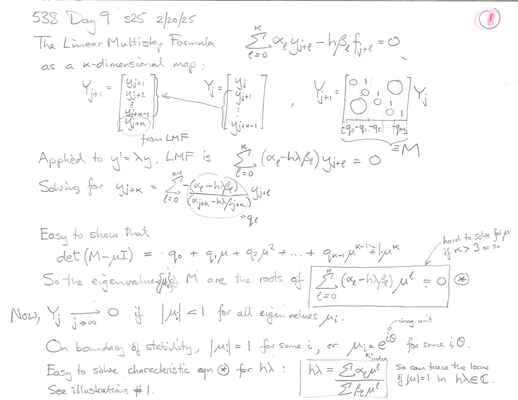 538 Day 9 S25 2/20/25
1
The Linear Multistep Formula \sum_{ℓ=0}^{κ} α_ℓ y_{j+ℓ} - hβ_ℓ f_{j+ℓ} = 0
as a κ-dimensional map:
Y_{j+1} = [y_{j+1} y_{j+2} ⋮ y_{j+κ-1} y_{j+κ}] Y_j = [y_j y_{j+1} ⋮ y_{j+κ-1}] , Y_{j+1} = [0 1 0 1 0 0 1 -q_0 -q_1 -q_2 ] Y_j
from LMF
≡M
Applied to y'=λy, LMF is \sum_{ℓ=0}^{κ} (α_ℓ - hλβ_ℓ) y_{j+ℓ} = 0
Solving for y_{j+κ} = \sum_{ℓ=0}^{κ-1} \frac{-(α_ℓ - hλβ_ℓ)}{(α_{j+κ} - hλβ_{j+κ})} y_{j+ℓ}
q_ℓ
Easy to show that
det(M-μI) = q_0 + q_1μ + q_2μ² + ... + q_{κ-1}μ^{κ-1} ± μ^κ
hard to solve for μ
if κ > 3 or so
So the eigenvalues {μ_i} of M are the roots of \sum_{ℓ=0}^{κ} (α_ℓ - hλβ_ℓ) μ^ℓ = 0 ⊛
Now, Y_j → 0 j→∞ if |μ_i| < 1 for all eigenvalues μ_i.
On boundary of stability, |μ_i| = 1 for some i, or μ_i = e^{iθ} for some i θ.
imag. unit
index
Easy to solve characteristic eqn ⊛ for hλ: hλ = \frac{\sum α_ℓ μ^ℓ}{\sum β_ℓ μ^ℓ} so can trace the locus
of |μ|=1 in hλ∈ℂ.
See illustrations #1.